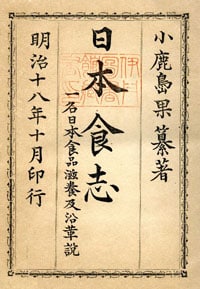 小鹿島果纂著
日本食志
一名日本食品滋養及沿革説
明治十八年十月印行